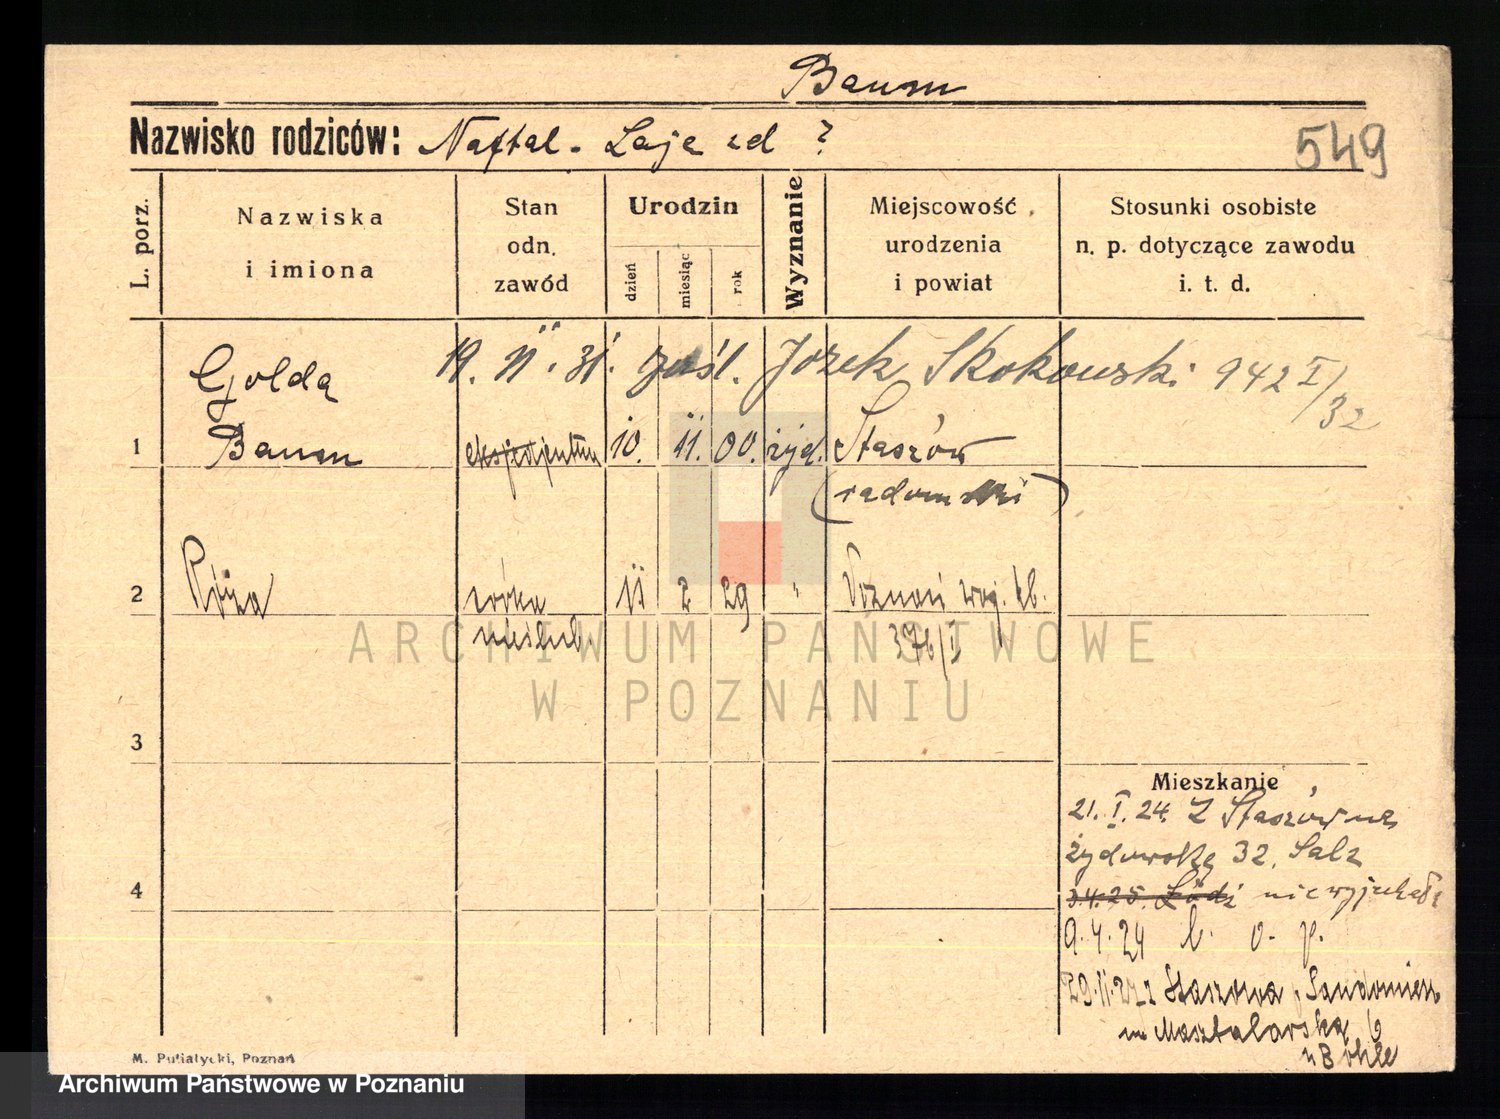 Baum
Nazwisko rodziców: Naftal - Laja zd ?
549
L. porz.
Nazwiska
i imiona
Stan
odn.
zawód
Urodzin
dzień
miesiąc
rok
Wyznanie
Miejscowość
urodzenia
i powiat
Stosunki osobiste
n. p. dotyczące zawodu
i. t. d.
19. II. 31. zaśl. Jozek Skokowski 942 I/32
Golda
1 Baum ekspedjentka 10. 11. 00. żyd. Staszów
(radomski)
2 Róża córka 11 2 29 " Poznań
nieślub. 376/I
ARCHIWUM PAŃSTWOWE
W POZNANIU
3
Mieszkanie
21. I. 24. z Staszów na
żydowską 32. Salz
4
3.4.25. Łódź nie wyjechała
9. 4. 24 b. o. p.
29.11.27 z Staszowa, Sandomierz
na Masztalarską 6
u Böhle
M. Putiatycki, Poznań
Archiwum Państwowe w Poznaniu